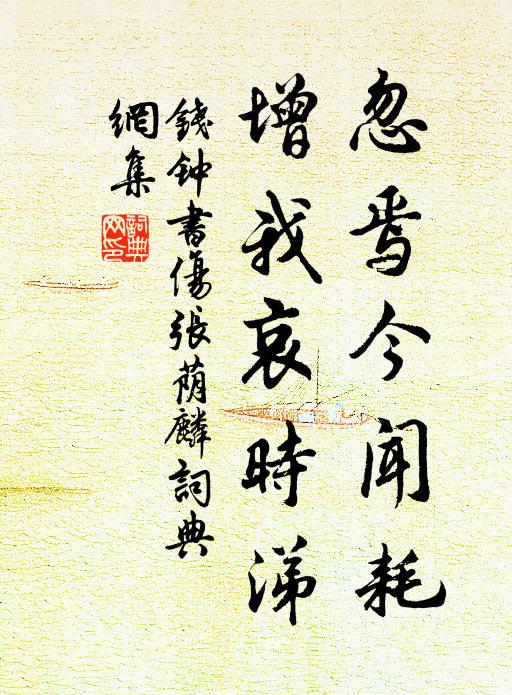 忽焉今闻耗
增我哀時涕
錢钟書傷張荫麟詞典
網集
詞典網印